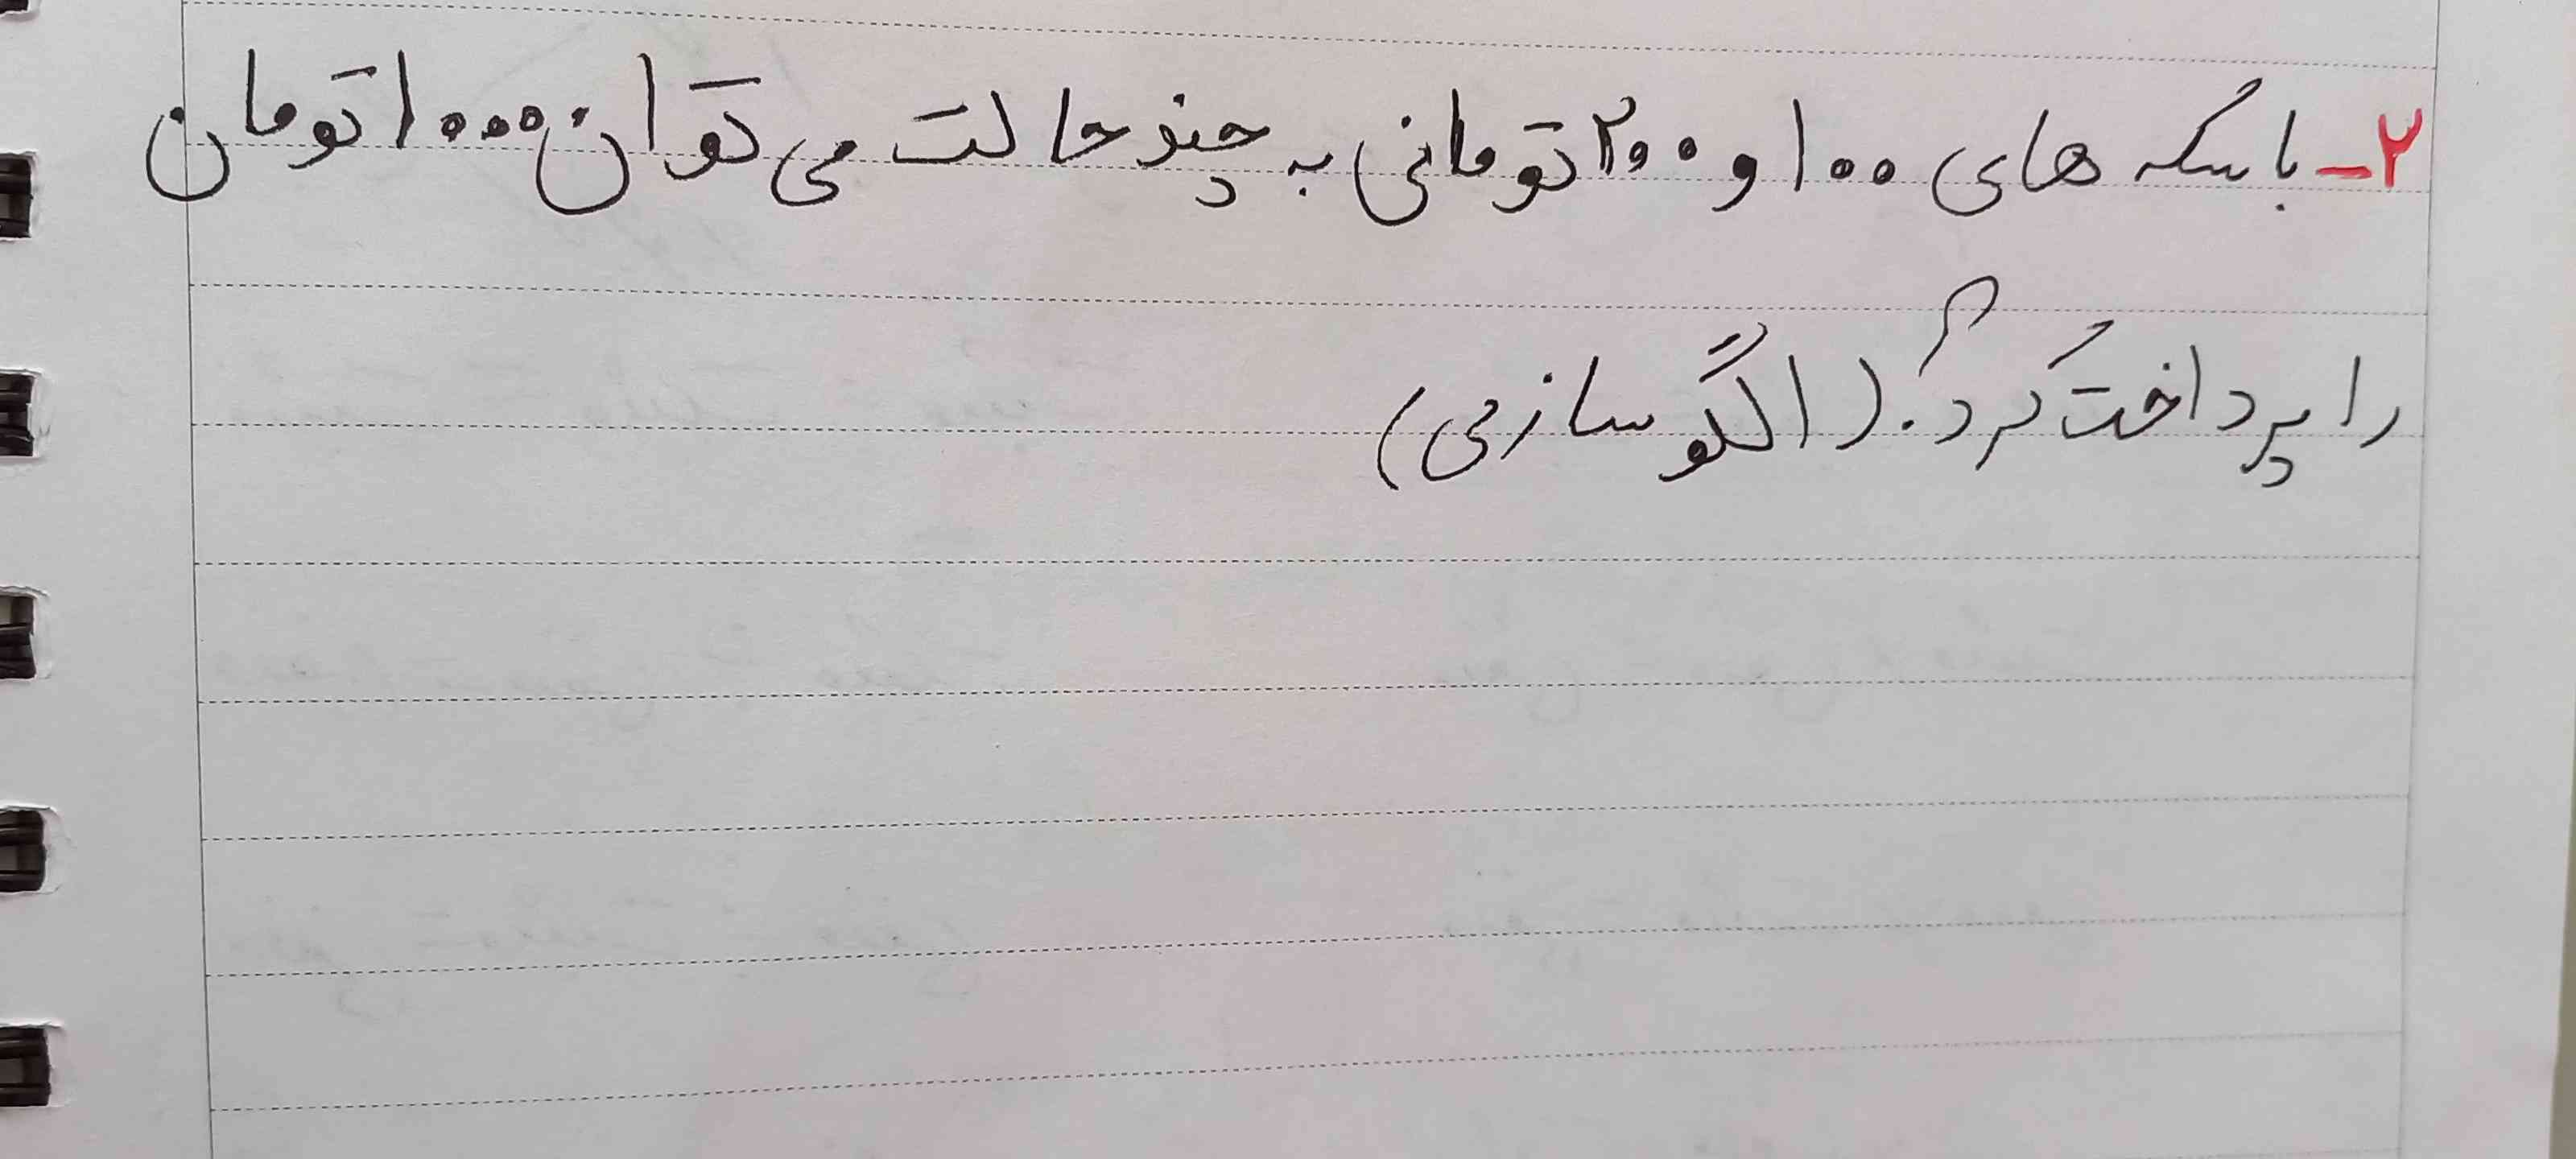 ۲- با سکه های ۱۰۰ و ۲۰۰ تومانی به چند حالت می توان ۱۰۰۰ تومان
را پرداخت کرد؟ (الگو سازی)